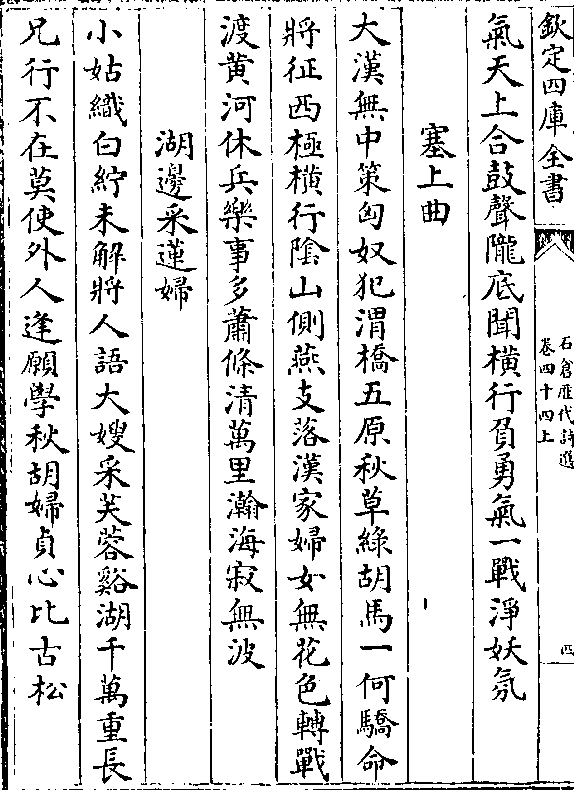 欽定四庫全書
石倉歷代詩選
卷四十四上
四
氣天上合鼓聲隴底聞橫行負勇氣一戰淨妖氛
塞上曲
大漢無中策匈奴犯渭橋五原秋草綠胡馬一何驕命
將征西極橫行隂山側燕支落漢家婦女無花色轉戰
渡黄河休兵樂事多蕭條清萬里瀚海寂無波
湖邊采蓮婦
小姑織白紵未解將人語大嫂采芙蓉谿湖千萬重長
兄行不在莫使外人逢願學秋胡婦貞心比古松